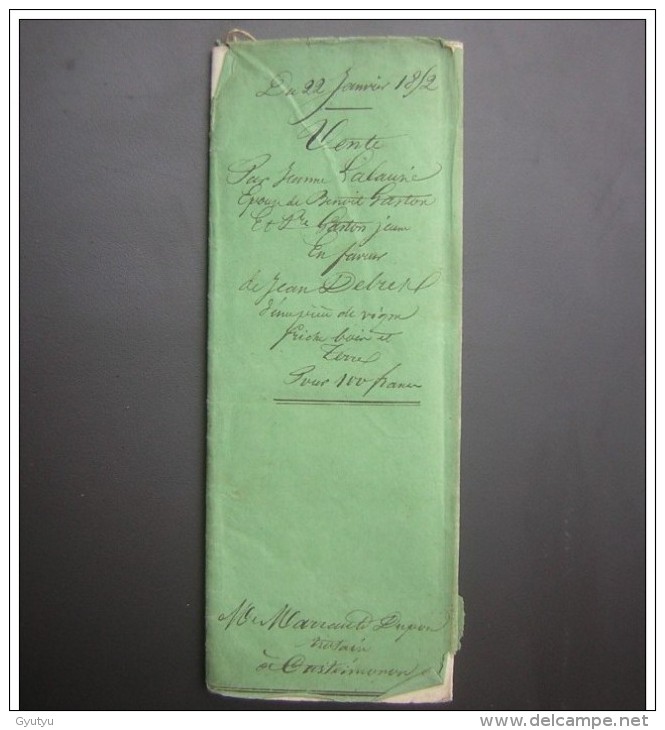 Du 22 Janvier 1852
Vente
Par Jeanne
Epouse de Benoit Gaston
Et Gaston jeune
En faveur
de Jean
de vigne
friche bois et
Terre
Pour 100 francs
Me Dupon
notaire
à Castelmoron
Gyutyu
www.delcampe.net